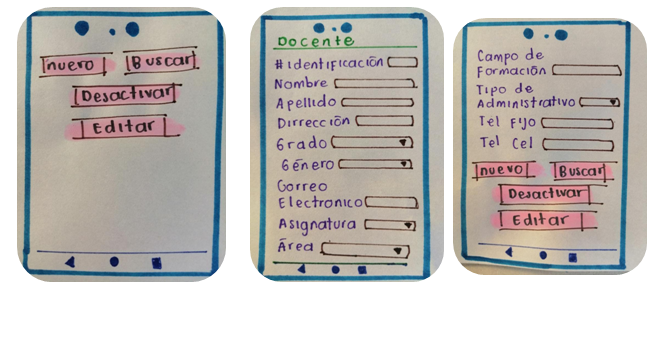 nuevo Buscar
Desactivar
Editar
Docente
# Identificación
Nombre
Apellido
Dirrección
Grado
Género
Correo
Electronico
Asignatura
Área
Campo de
Formación
Tipo de
Administrativo
Tel Fijo
Tel Cel
nuevo Buscar
Desactivar
Editar